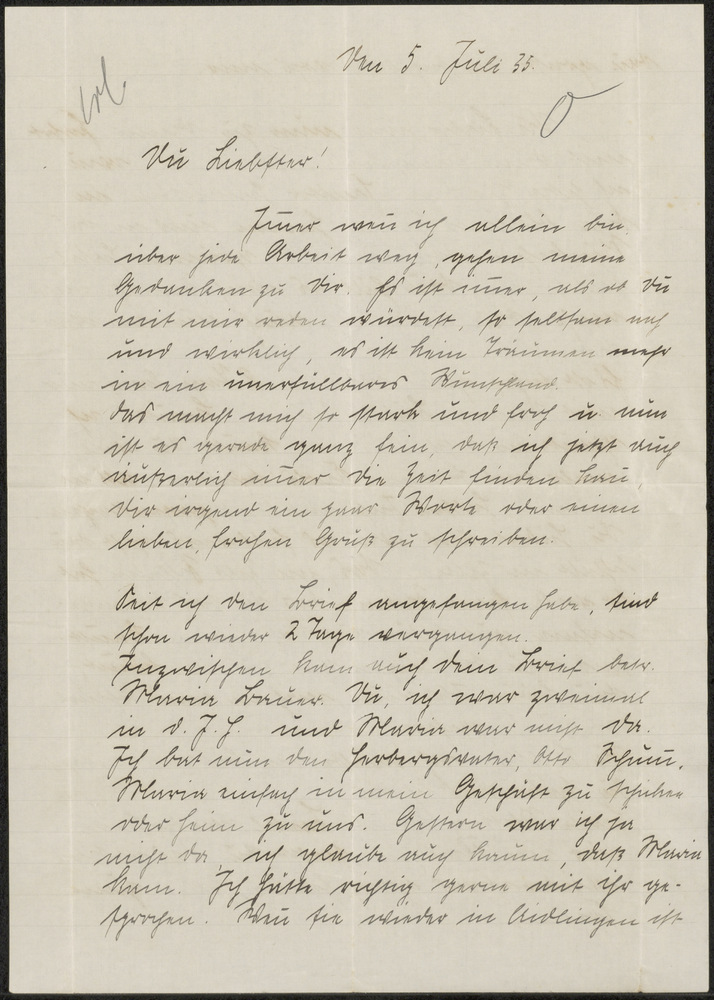 Den 5. Juli 35.
Du Liebster!
Im̅er wen̅ ich allein bin,
über jede Arbeit weg, gehen meine
Gedanken zu Dir. Es ist im̅er, als ob Du
mit mir reden würdest, so seltsam nah
und wirklich, es ist kein Träumen mehr
in ein unerfüllbares Wunschland.
Das macht mich so stark und froh u. nun
ist es gerade ganz fein, daß ich jetzt auch
äußerlich im̅er die Zeit finden kan̅,
Dir irgend ein paar Worte oder einen
lieben, frohen Gruß zu schreiben.
Seit ich den Brief angefangen habe, sind
schon wieder 2 Tage vergangen.
Inzwischen kam auch dein Brief betr.
Maria Bauer. Du, ich war zweimal
in d. J. H. und Maria war nicht da.
Ich bat nun den Herbergsvater, Otto
Maria einfach in mein Geschäft zu schicken
oder heim zu uns. Gestern war ich ja
nicht da, ich glaube auch kaum, daß Maria
kam. Ich hätte richtig gerne mit ihr ge-
sprochen. Wen̅ sie wieder in Aidlingen ist